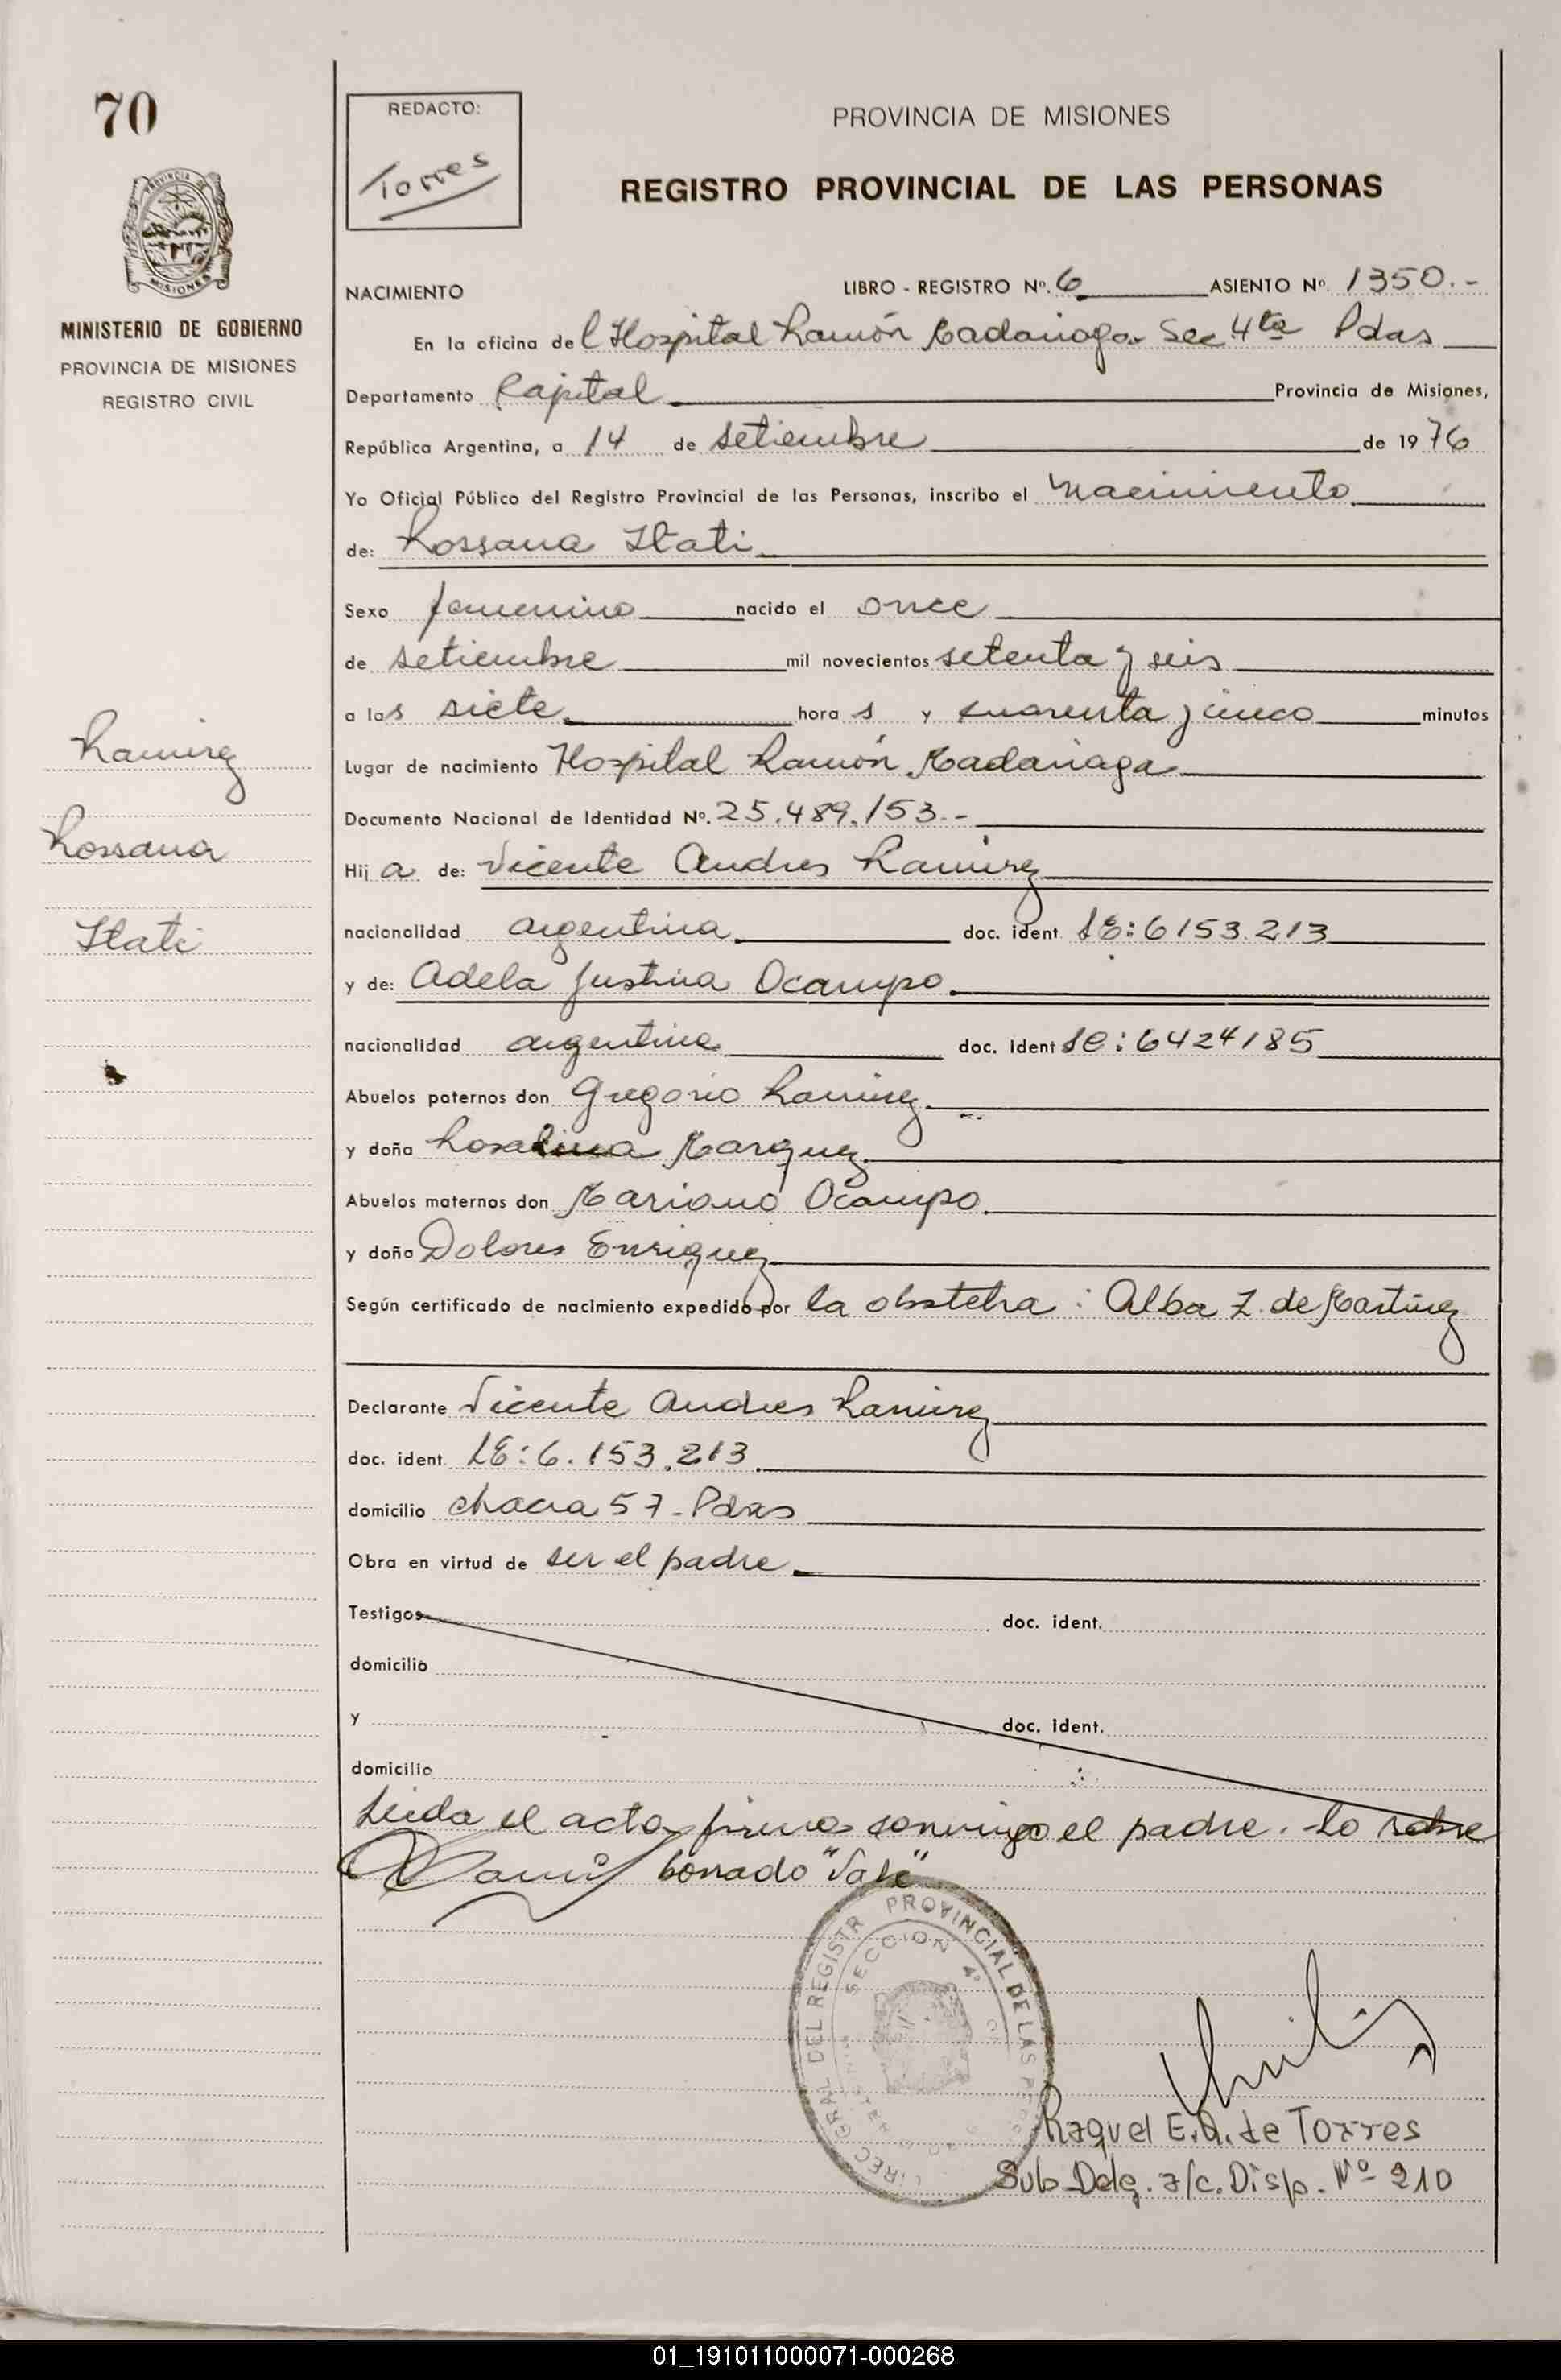 70
PROVINCIA DE
MISIONES
MINISTERIO DE GOBIERNO
PROVINCIA DE MISIONES
REGISTRO CIVIL
Ramirez
Rossana
Itati
REDACTO:
Torres
PROVINCIA DE MISIONES
REGISTRO PROVINCIAL DE LAS PERSONAS
NACIMIENTO LIBRO - REGISTRO Nº. 6 ASIENTO Nº. 1350.-
En la oficina del Hospital Ramón Madariaga Sec 4ta Pdas
Departamento Capital Provincia de Misiones,
República Argentina, a 14 de setiembre de 1976
Yo Oficial Público del Registro Provincial de las Personas, inscribo el nacimiento
de: Rossana Itati
Sexo femenino nacido el once
de setiembre mil novecientos setenta y seis
a las siete hora s y cuarenta y cinco minutos
Lugar de nacimiento Hospital Ramón Madariaga
Documento Nacional de Identidad Nº. 25.489.153.-
Hij a de: Vicente Andres Ramirez
nacionalidad argentina doc. ident. LE: 6153.213
y de: Adela Justina Ocampo
nacionalidad argentina doc. ident LC: 6424185
Abuelos paternos don Gregorio Ramirez
y doña Rosalina Marquez
Abuelos maternos don Mariano Ocampo
y doña Dolores Enriquez
Según certificado de nacimiento expedido por la obstetra: Alba Z. de Martinez
Declarante Vicente Andres Ramirez
doc. ident. LE: 6.153.213
domicilio chacra 57 - Pdas
Obra en virtud de ser el padre
Testigos doc. ident.
domicilio
y doc. ident.
domicilio
Leida el acta firma conmigo el padre. Lo sobre
borrado "Vale"
GRAL DEL REGISTR PROVINCIAL DE LAS
SECCION 4º
Raquel E.A. de Torres
Sub Deleg. a/c. Disp. Nº 210
01_191011000071-000268